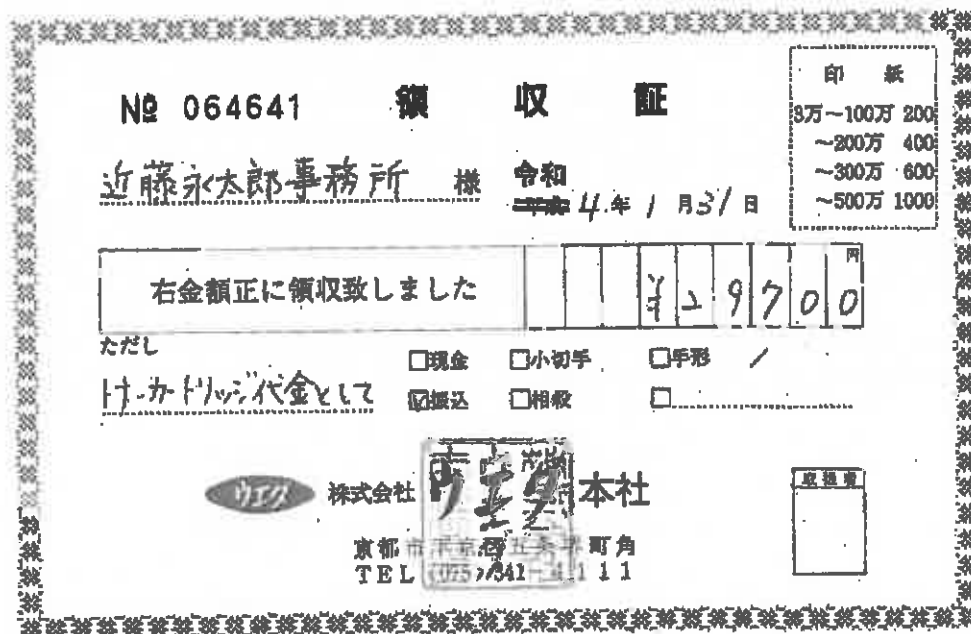 № 064641 領収証
印紙
3万〜100万 200
〜200万 400
〜300万 600
〜500万 1000
近藤永太郎事務所 様
令和
平成 4年1月31日
右金額正に領収致しました
円
¥29700
ただし
トナーカートリッジ代金として
□現金 □小切手 □手形
☑振込 □相殺 □
ウエダ 株式会社 ウエダ本社
取扱者
京都市 五条 町角
TEL (075) 341-4111